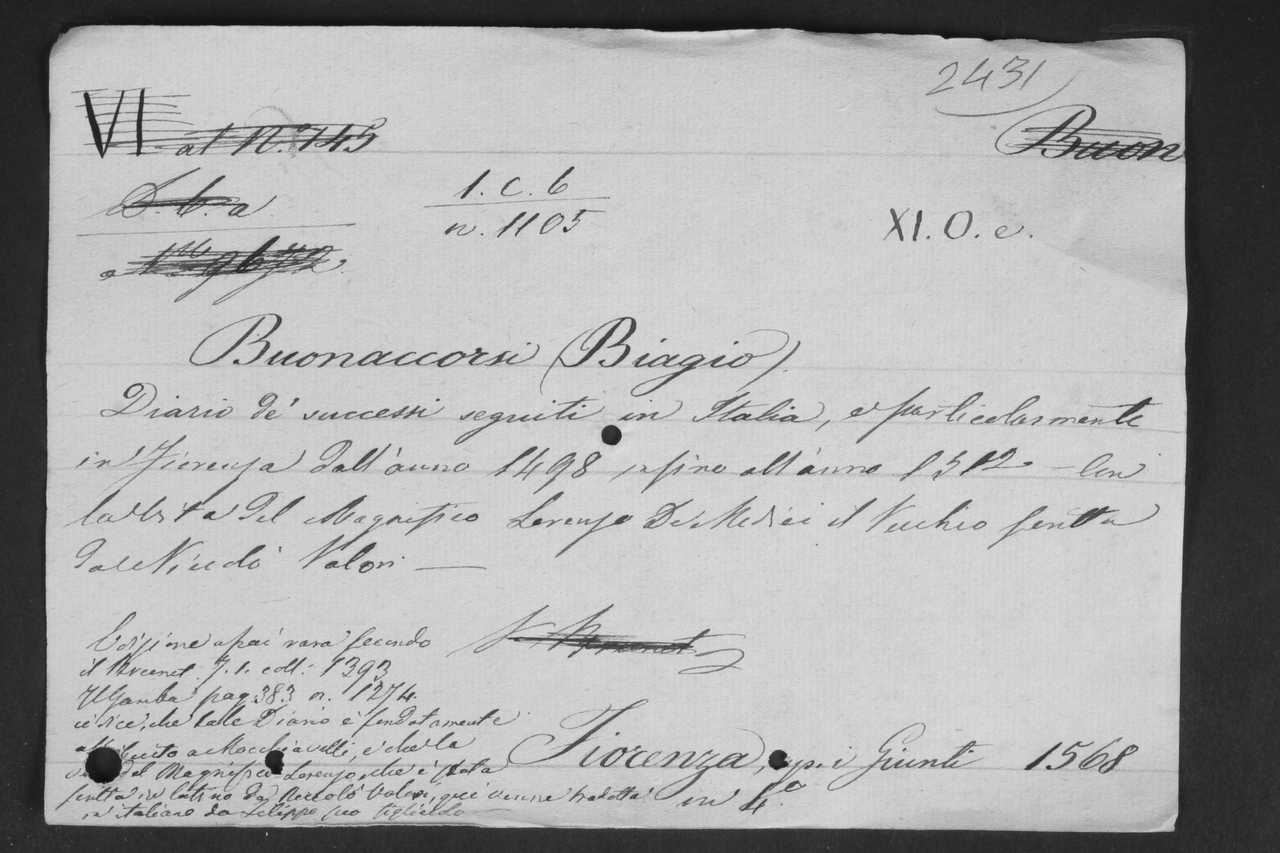 2431
VI al N.° 145
Buon
D. b. a
1. c. 6
n. 1105
XI. O. e.
Buonaccorsi (Biagio)
Diario de' successi seguiti in Italia, e particolarmente
in Fiorenza dall'anno 1498 infino all'anno 1512 – Con
la Vita del Magnifico Lorenzo De Medici il Vecchio scritta
da Niccolò Valori —
Edizione assai rara secondo
V. Brunet
il Brunet. T. 1. coll: 1393
Il Gamba pag. 383 n. 1274.
ci dice, che tale Diario è fondatamente
attribuito a Macchiavelli, e che la
Vita del Magnifico Lorenzo, che è stata
scritta in latino da Niccolò Valori, qui venne tradotta
in italiano da Filippo suo figliuolo —
Fiorenza, app. i Giunti 1568
in 4.°